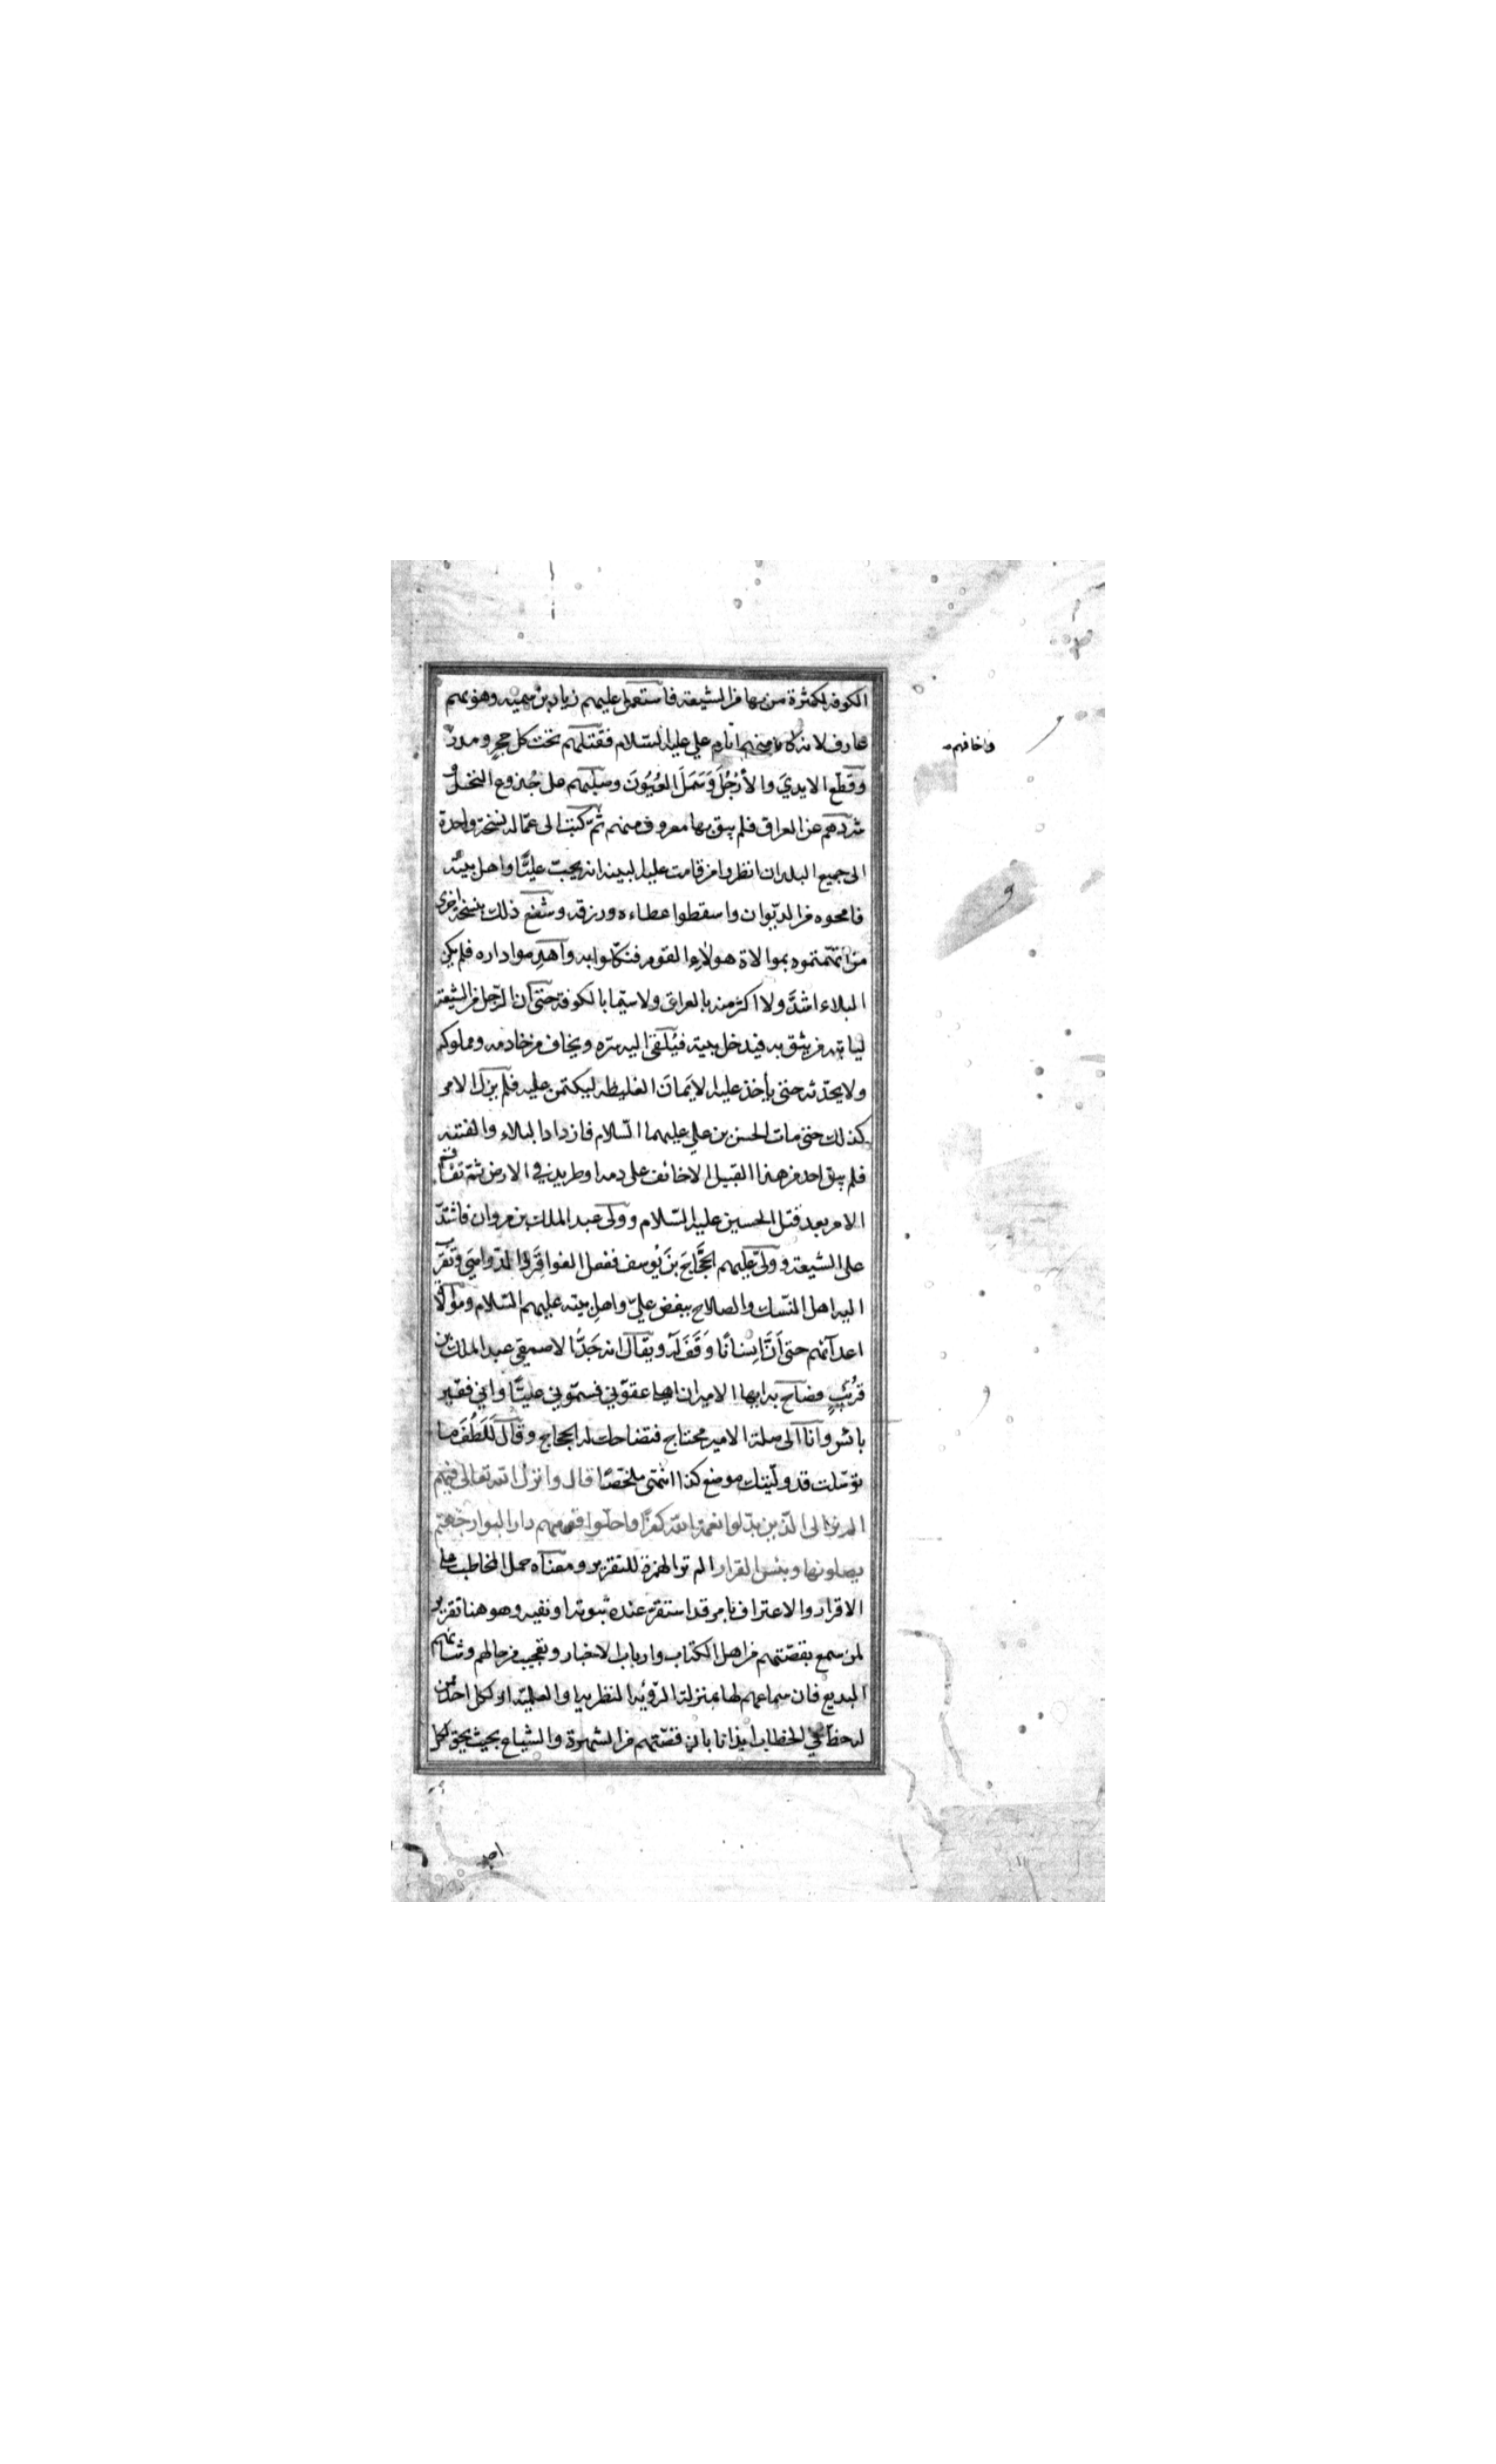 الكوفة لكثرة من بها من الشيعة فاستعمل عليهم زياد بن سمية وهو بهم
عارف لانه كان منهم ايام علي عليه السلام فقتلهم تحت كل حجر ومدر
واخافهم
وقطع الايدي والأرْجُلَ وَسَمَلَ العُيُونَ وصلبهم على جُذوع النخل و
شردهم عن العراق فلم يبق بها معروف منهم ثمّ كتب الى عمّاله نسخة واحدة
الى جميع البلدان انظروا من قامت عليه البينة انه يحبّ عليًّا واهل بيته
فامحوه من الديّوان واسقطوا عطاءه ورزقه وشفع ذلك بنسخة اخرى
من اتّهمتموه بموالاة هولاء القوم فنكّلوا به واهدموا داره فلم يكن
البلاء اشدَّ ولا اكثر منه بالعراق ولا سيّما بالكوفة حتى ان الرّجل من الشيعة
لياتيه من يثق به فيدخل بيته فيُلقي اليه سره ويخاف من خادمه ومملوكه
ولا يحدّثه حتى يأخذ عليه الايَمانَ الغليظة ليكتمن عليه فلم يزل الامر
كذلك حتى مات الحسن بن علي عليهما السّلام فازداد البلاء والفتنة
فلم يبق احد من هذا القبيل الا خائف على دمه او طريد في الارض ثمّ تفاقم
الامر بعد قتل الحسين عليه السّلام وولى عبد الملك بن مروان فاشتدّ
على الشيعة وولى عليهم الحَّجَاجَ بنَ يُوسف ففعل الفواقِرَ والدّواهي وتقرّب
اليه اهل النّسك والصلاح ببغض عليّ واهل بيته عليهم السّلام وموالاة
اعدآئهم حتى اَنَّ اِنسانًا وَقَفَ لَه ويقال انه جَدُّ الاصمعي عبد الملك بن
قُرَيْبٍ فصاح به ايها الامير ان اهلي عقوّني فسمّوني عليًّا واني فقير
بائس وانا الى صلة الامير محتاج فتضاحك له الحجاج وقال لَلَطُفَ ما
توسّلت قد ولّيتك موضع كذا انتهى ملخّصًا قال وانزل الله تعالى فيهم
الم تر الى الذين بدّلوا نعمة الله كفرًا واحلّوا قومهم دار البوار جهنّم
يصلونها وبئس القرار الم تر الهمزة للتقرير ومعناه حمل المخاطب على
الاقرار والاعتراف بامر قد استقرّ عنده ثبوته او نفيه وهو هنا تقرير
لمن سمع بقصّتهم من اهل الكتاب وارباب الاخبار وتعجيب من حالهم وشانهم
البديع فان سماعهم لها بمنزلة الرّؤية النظرية او العلميّة او لكل احد من
له حظّ في الخطاب ايذانا بان قصّتهم من الشهرة والشياع بحيث يحق لكل
احد